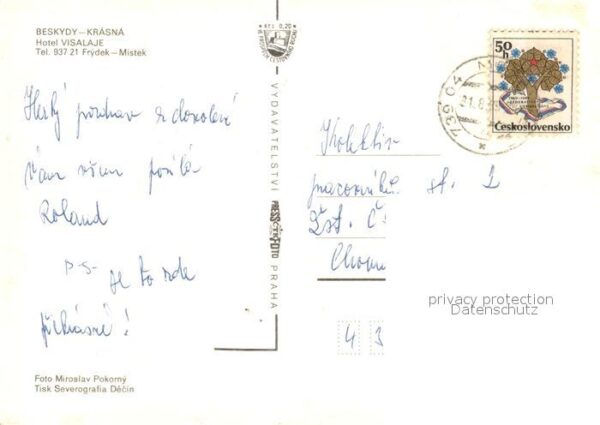 BESKYDY – KRÁSNÁ
Hotel VISALAJE
Tel. 937 21 Frýdek – Místek
Kčs 0,20
50 h
Československo
Hezký pozdrav z dovolené
Vám všem posílá
Roland
P.S. je to zde
překrásné!
VYDAVATELSTVÍ
PRESSFOTO
PRAHA
Kolektiv
pracovníků st. 2
Žst. Č
Chomu
43
privacy protection
Datenschutz
Foto Miroslav Pokorný
Tisk Severografia Děčín